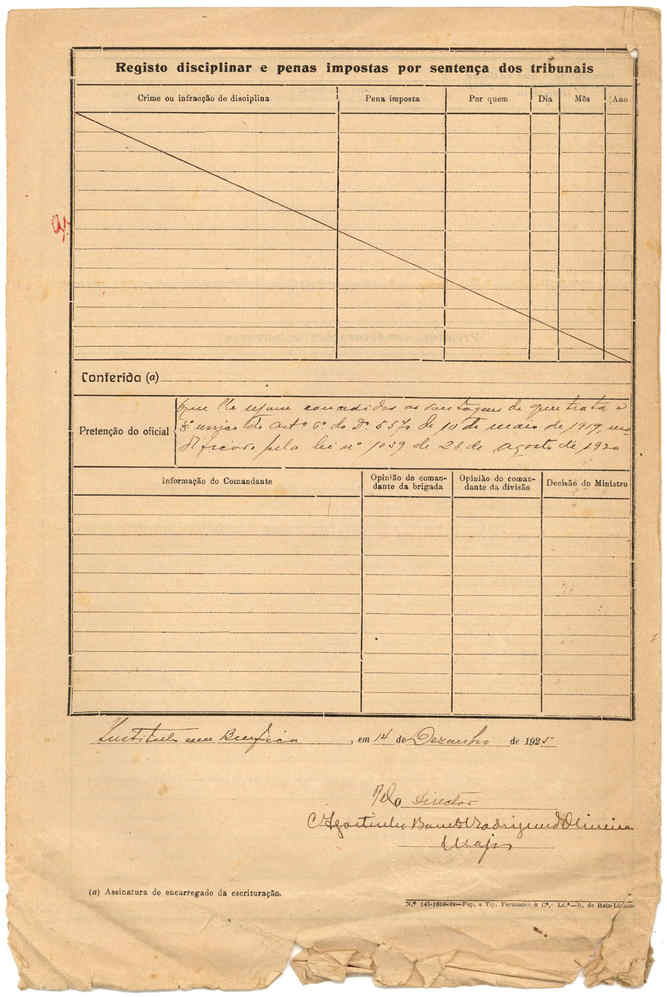 Registo disciplinar e penas impostas por sentença dos tribunais
Crime ou infracção de disciplina Pena imposta Por quem Dia Mês Ano
Conferida (a)
Pretenção do oficial
que lhe sejam concedidas as vantagens de que trata o
do artº 6º do Dº 5570 de 10 de maio de 1919,
pela lei nº 1039 de 28 de Agosto de 1920
Informação do Comandante
Opinião do coman-
dante da brigada
Opinião do coman-
dante da divisão
Decisão do Ministro
Instituto em Benfica, em 14 de Dezembro de 1925
Pelo Director
Agostinho Rodrigues d'Oliveira
Major
(a) Assinatura do encarregado da escrituração.